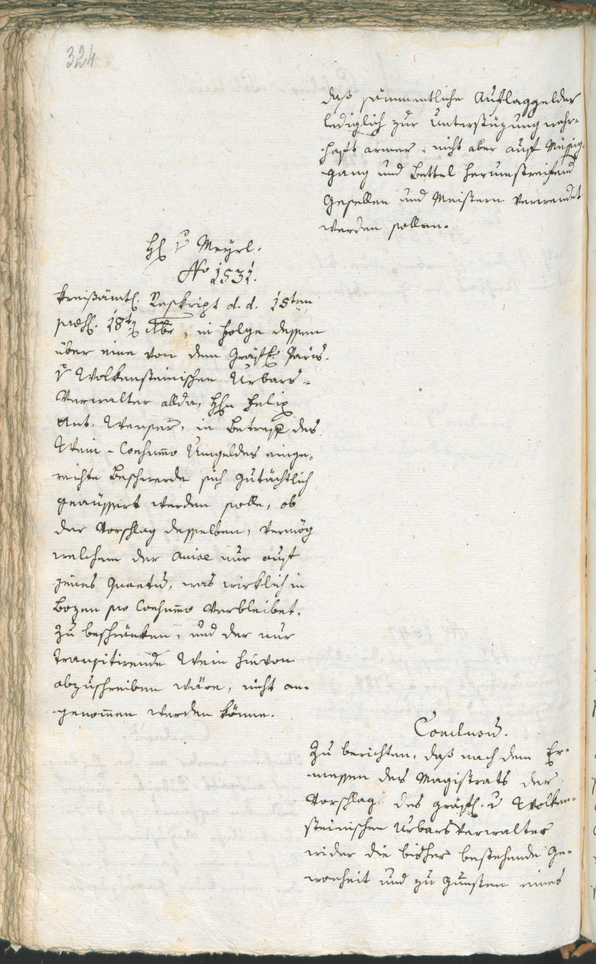 324
daß sämmentliche Auflaggelder
lediglich zur Unterstüzung wahr-
haft armer, nicht aber auf Müssig-
gang und Bettel herumstreifend
Gesellen und Meistern verwendet
werden sollen.
H v Meyrl.
No 1531.
Kreisämtl. Reskript d. d. 15ten
praes. 18t 8br, in Folge dessen
über eine von dem Gräfl. Paris.
v Wolkensteinischen Urbars-
Verwalter allda, Hn Felix
Ant. Wenser, in Betreff des
Wein-Consumo Umgeldes einge-
reichte Beschwerde sich gutächtlich
geäussert werden solle, ob
der Vorschlag desselben, vermög
welchem der nur auf
jenes Quantum, was wirklich in
Bozen pro Consumo verbleibet.
zu beschränken, und der nur
transitirende Wein hievon
abzuschreiben wäre, nicht an-
genommen werden könne.
Conclusum.
Zu berichten, daß nach dem Er-
messen des Magistrats der
Vorschlag des gräfl. v Wolken-
steinischen Urbarsverwalters
wider die bisher bestehende Ge-
wonheit und zu Gunsten eines